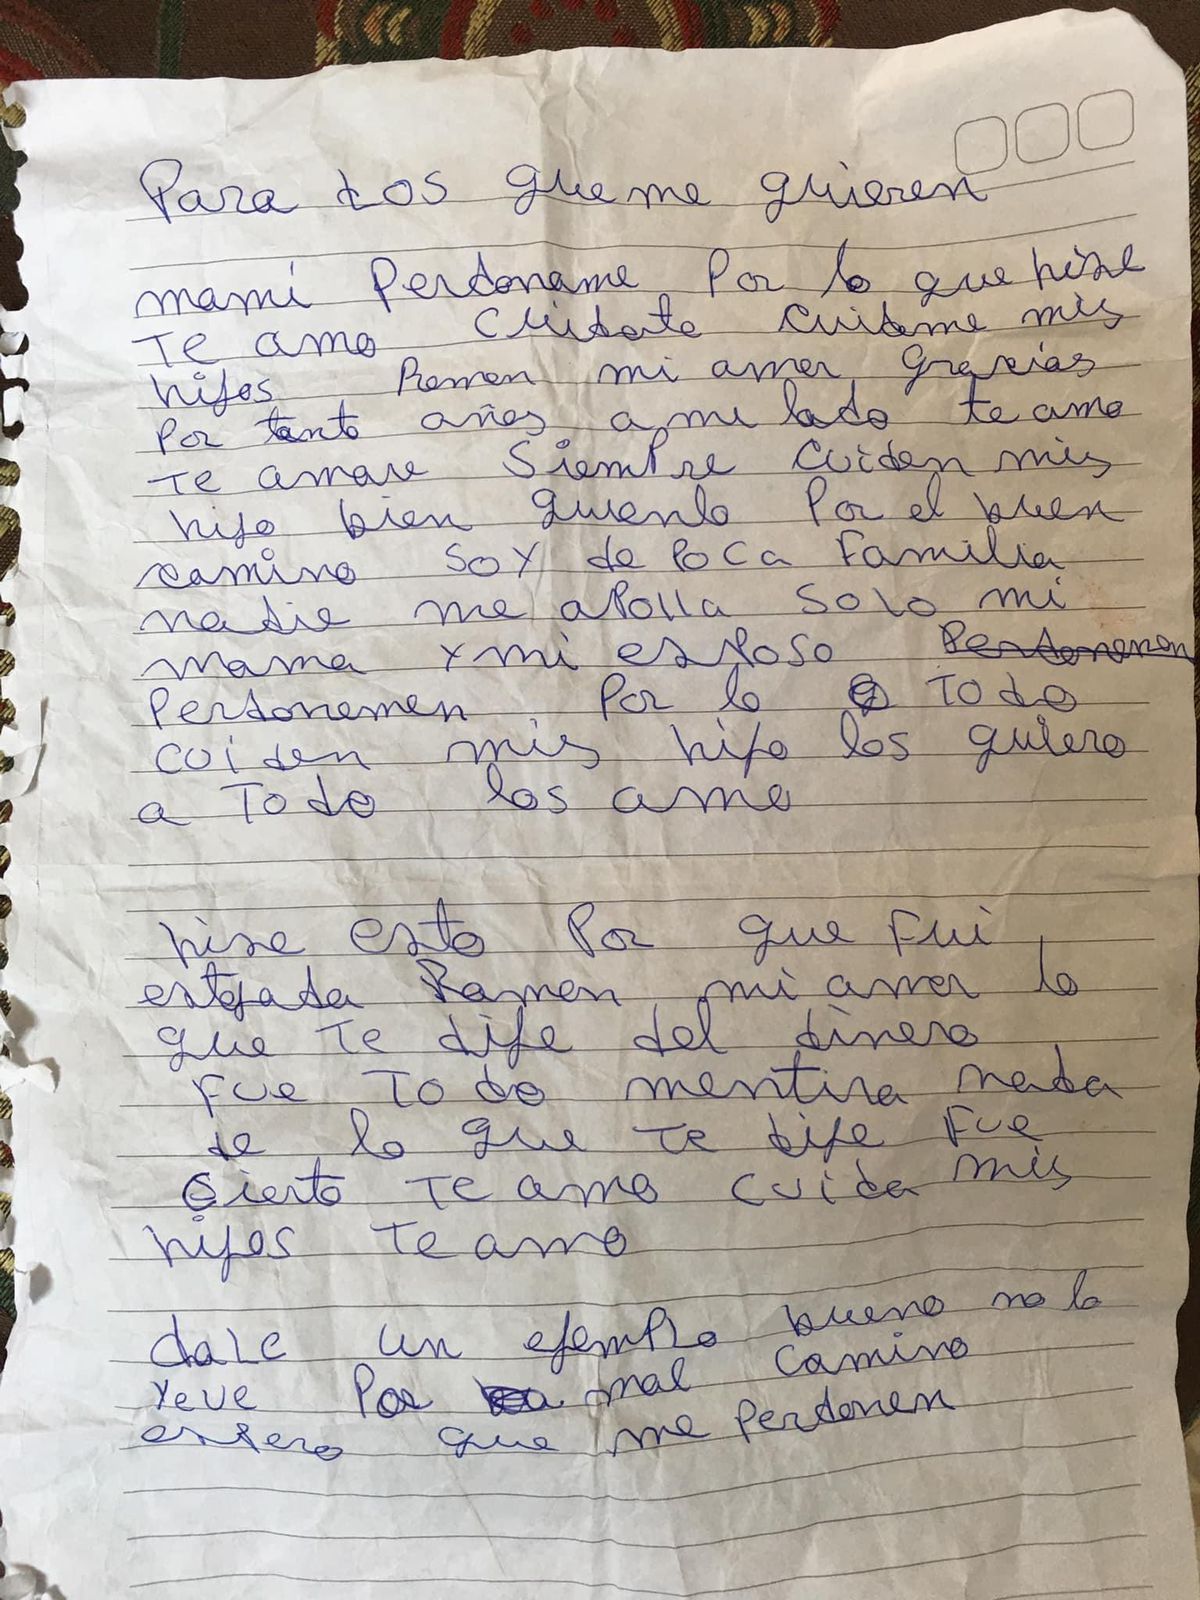 Para Los que me quieren
mami Perdoname Por lo que hise
Te amo Cuidate cuidame mis
hijos Ramon mi amor Grasias
Por tanto años a mi lado te amo
Te amare Siempre cuiden mis
hijo bien quienlo Por el buen
camino soy de Poca Familia
nadie me apolla solo mi
mama y mi esposo Perdonemen
Perdonemen Por lo Todo
cuiden mis hijo los quiero
a Todo los amo
hise esto Por que Fui
estafada Ramon mi amor lo
que Te dije del dinero
Fue Todo mentira nada
de lo que Te dije Fue
Cierto Te amo cuida mis
hijos Te amo
dale un ejemplo bueno no lo
yeve Por mal camino
espero que me perdonen